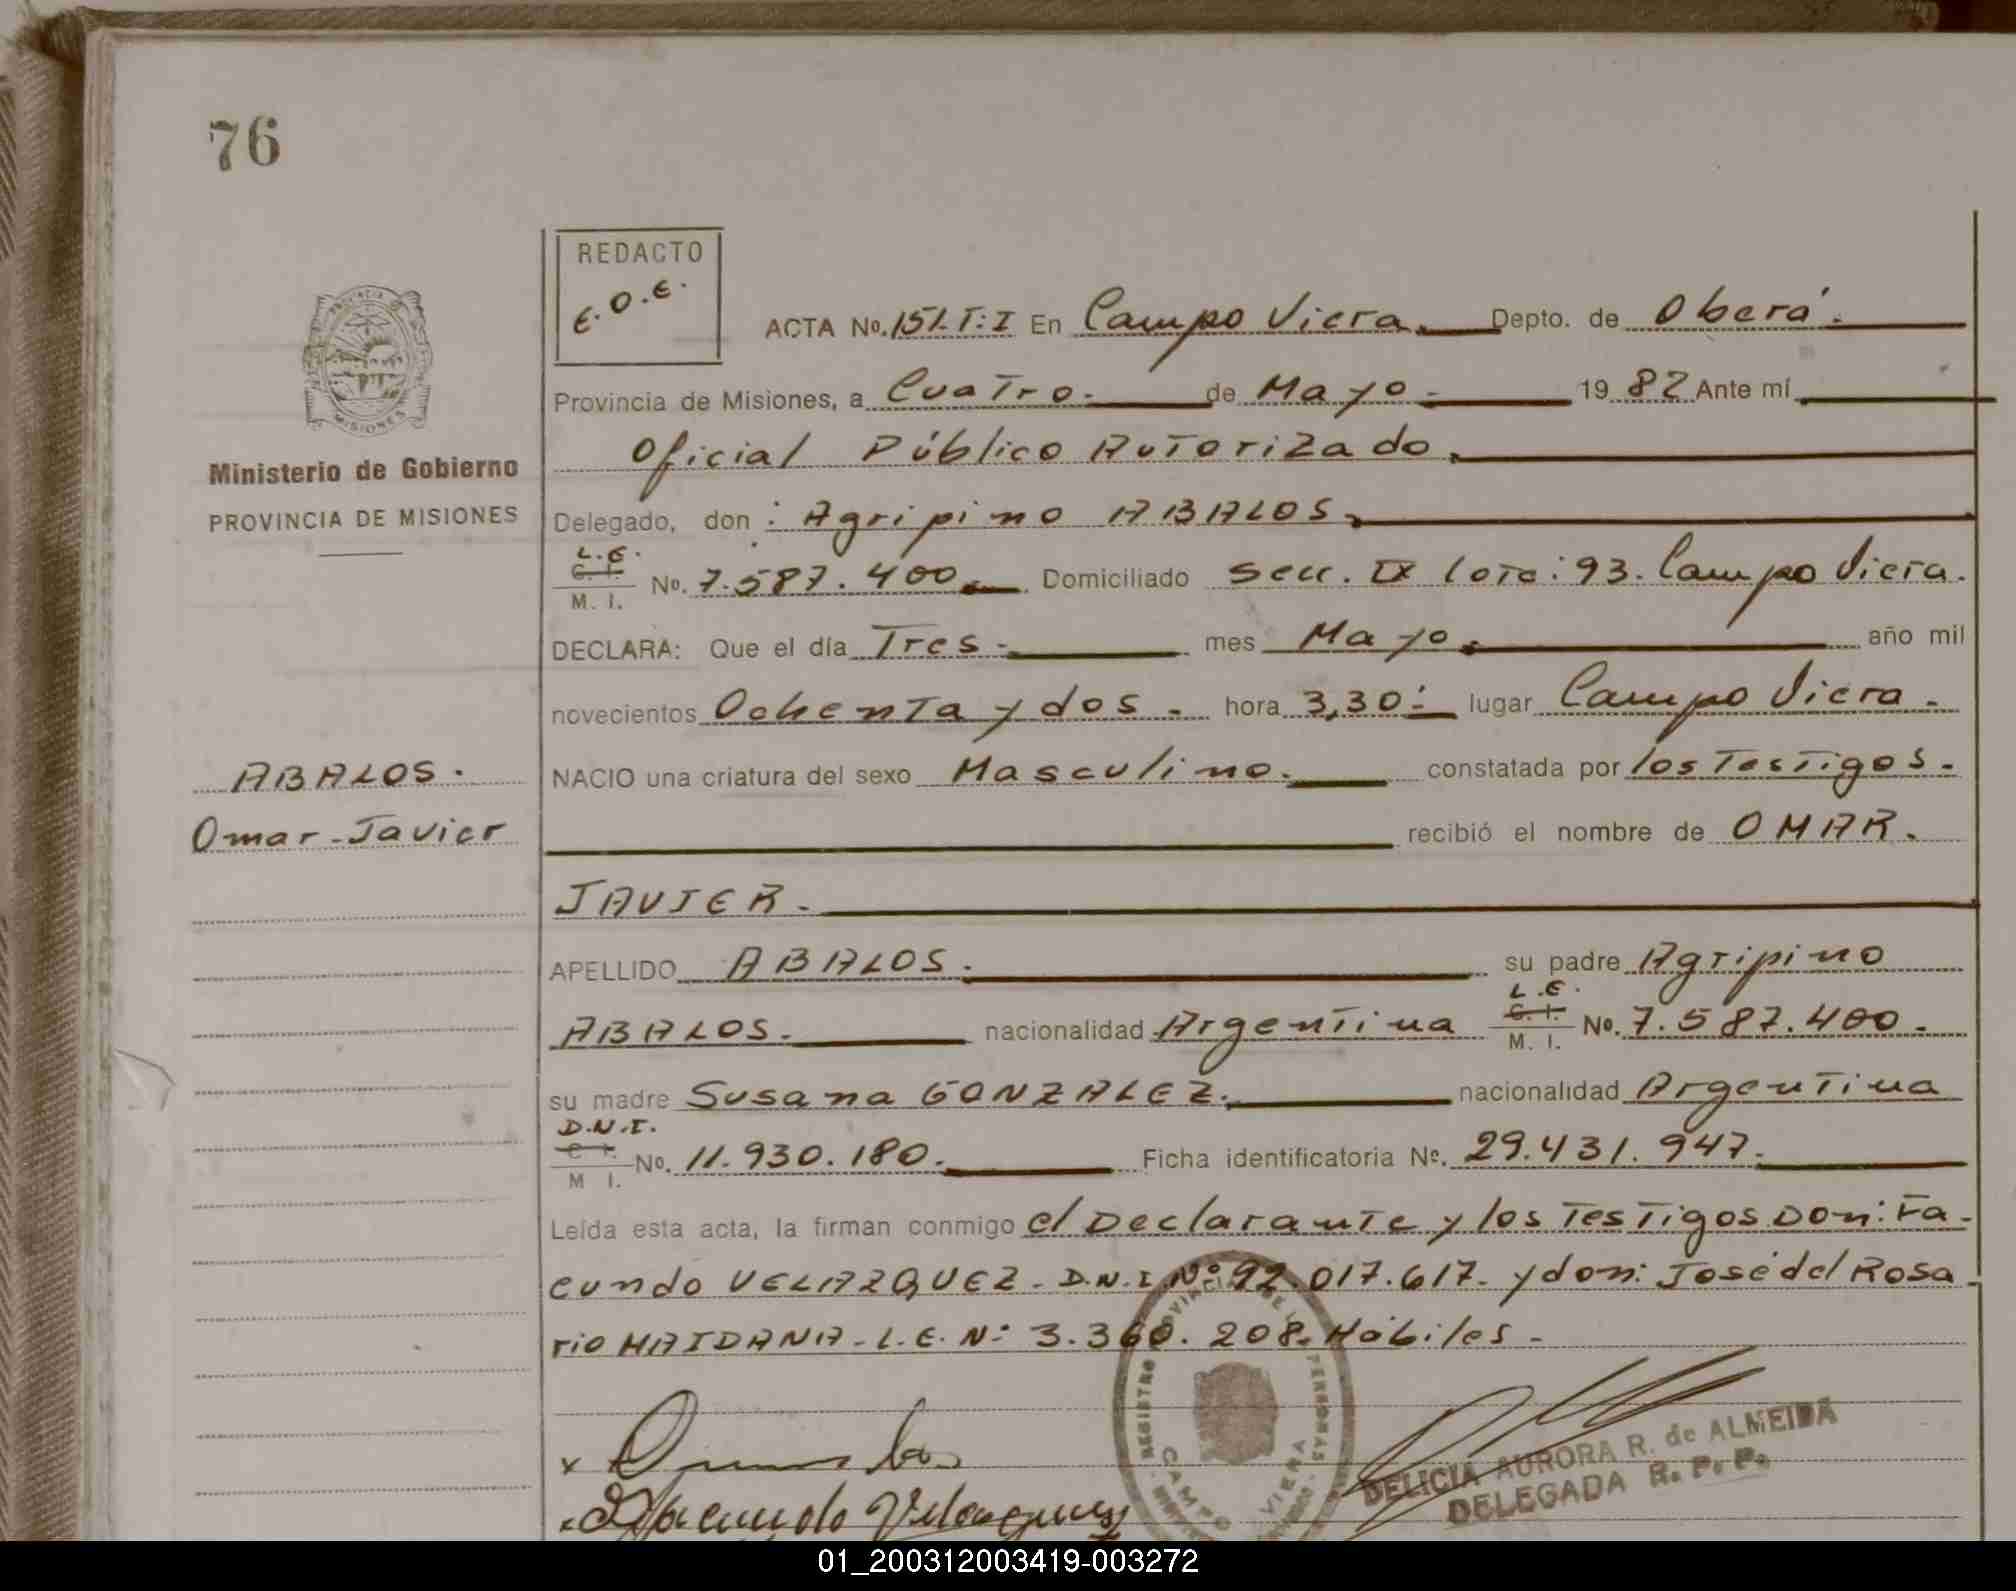 76
REDACTO
E.O.E.
ACTA No. 151.T:I En Campo Viera. Depto. de Oberá.
Provincia de Misiones, a Cuatro. de Mayo. 1982 Ante mí
Oficial Público Autorizado.
Delegado, don: Agripino ABALOS.
L.E.
C. I.
M. I.
No. 7.587.400. Domiciliado Secc. IX Lote: 93. Campo Viera.
DECLARA: Que el día Tres. mes Mayo. año mil
novecientos Ochenta y dos. hora 3,30:- lugar Campo Viera.
NACIO una criatura del sexo Masculino. constatada por los Testigos.
recibió el nombre de OMAR.
JAVIER.
APELLIDO ABALOS. su padre Agripino
ABALOS. nacionalidad Argentina L.E. C. I. M. I. No. 7.587.400.
su madre Susana GONZALEZ. nacionalidad Argentina
D.N.I.
C I.
M I.
No. 11.930.180. Ficha identificatoria No. 29.431.947.
Leída esta acta, la firman conmigo el Declarante y los Testigos Don: Fa-
cundo VELAZQUEZ. D.N.I. Nº 92.017.617. y don: José del Rosa
rio MAIDANA. L.E. Nº 3.360.208. Hábiles.
PROVINCIA DE MISIONES
Ministerio de Gobierno
PROVINCIA DE MISIONES
ABALOS.
Omar Javier
Facundo Velazquez
REGISTRO PROVINCIAL DE LAS PERSONAS
CAMPO VIERA
DELICIA AURORA R. de ALMEIDA
DELEGADA R. P. P.
01_200312003419-003272